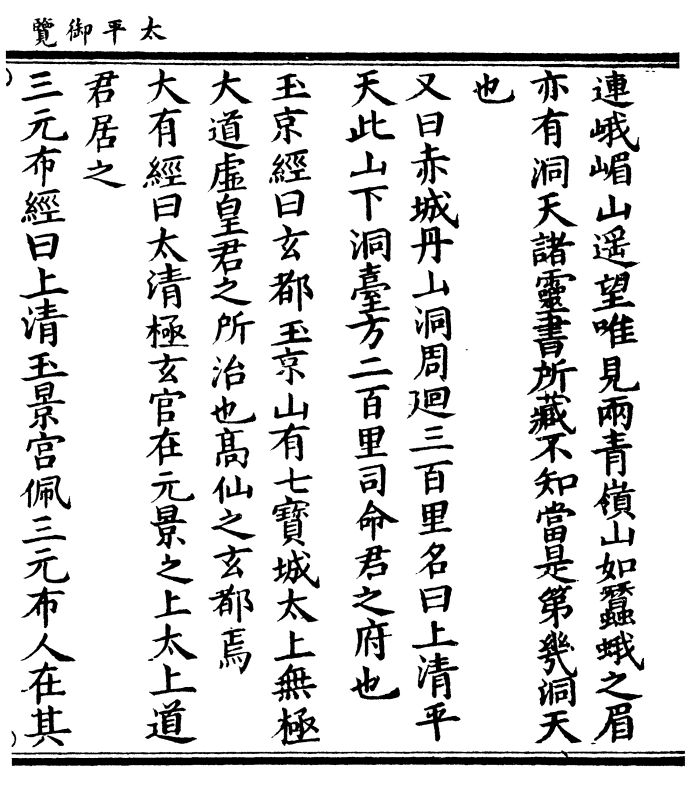 太平御覽
連峨嵋山遥望唯見兩青嶺山如蠶蛾之眉
亦有洞天諸靈書所藏不知當是第幾洞天
也
又曰赤城丹山洞周廻三百里名曰上清平
天此山下洞臺方二百里司命君之府也
玉京經曰玄都玉京山有七寶城太上無極
大道虛皇君之所治也髙仙之玄都焉
大有經曰太清極玄官在元景之上太上道
君居之
三元布經曰上清玉景宫佩三元布人在其